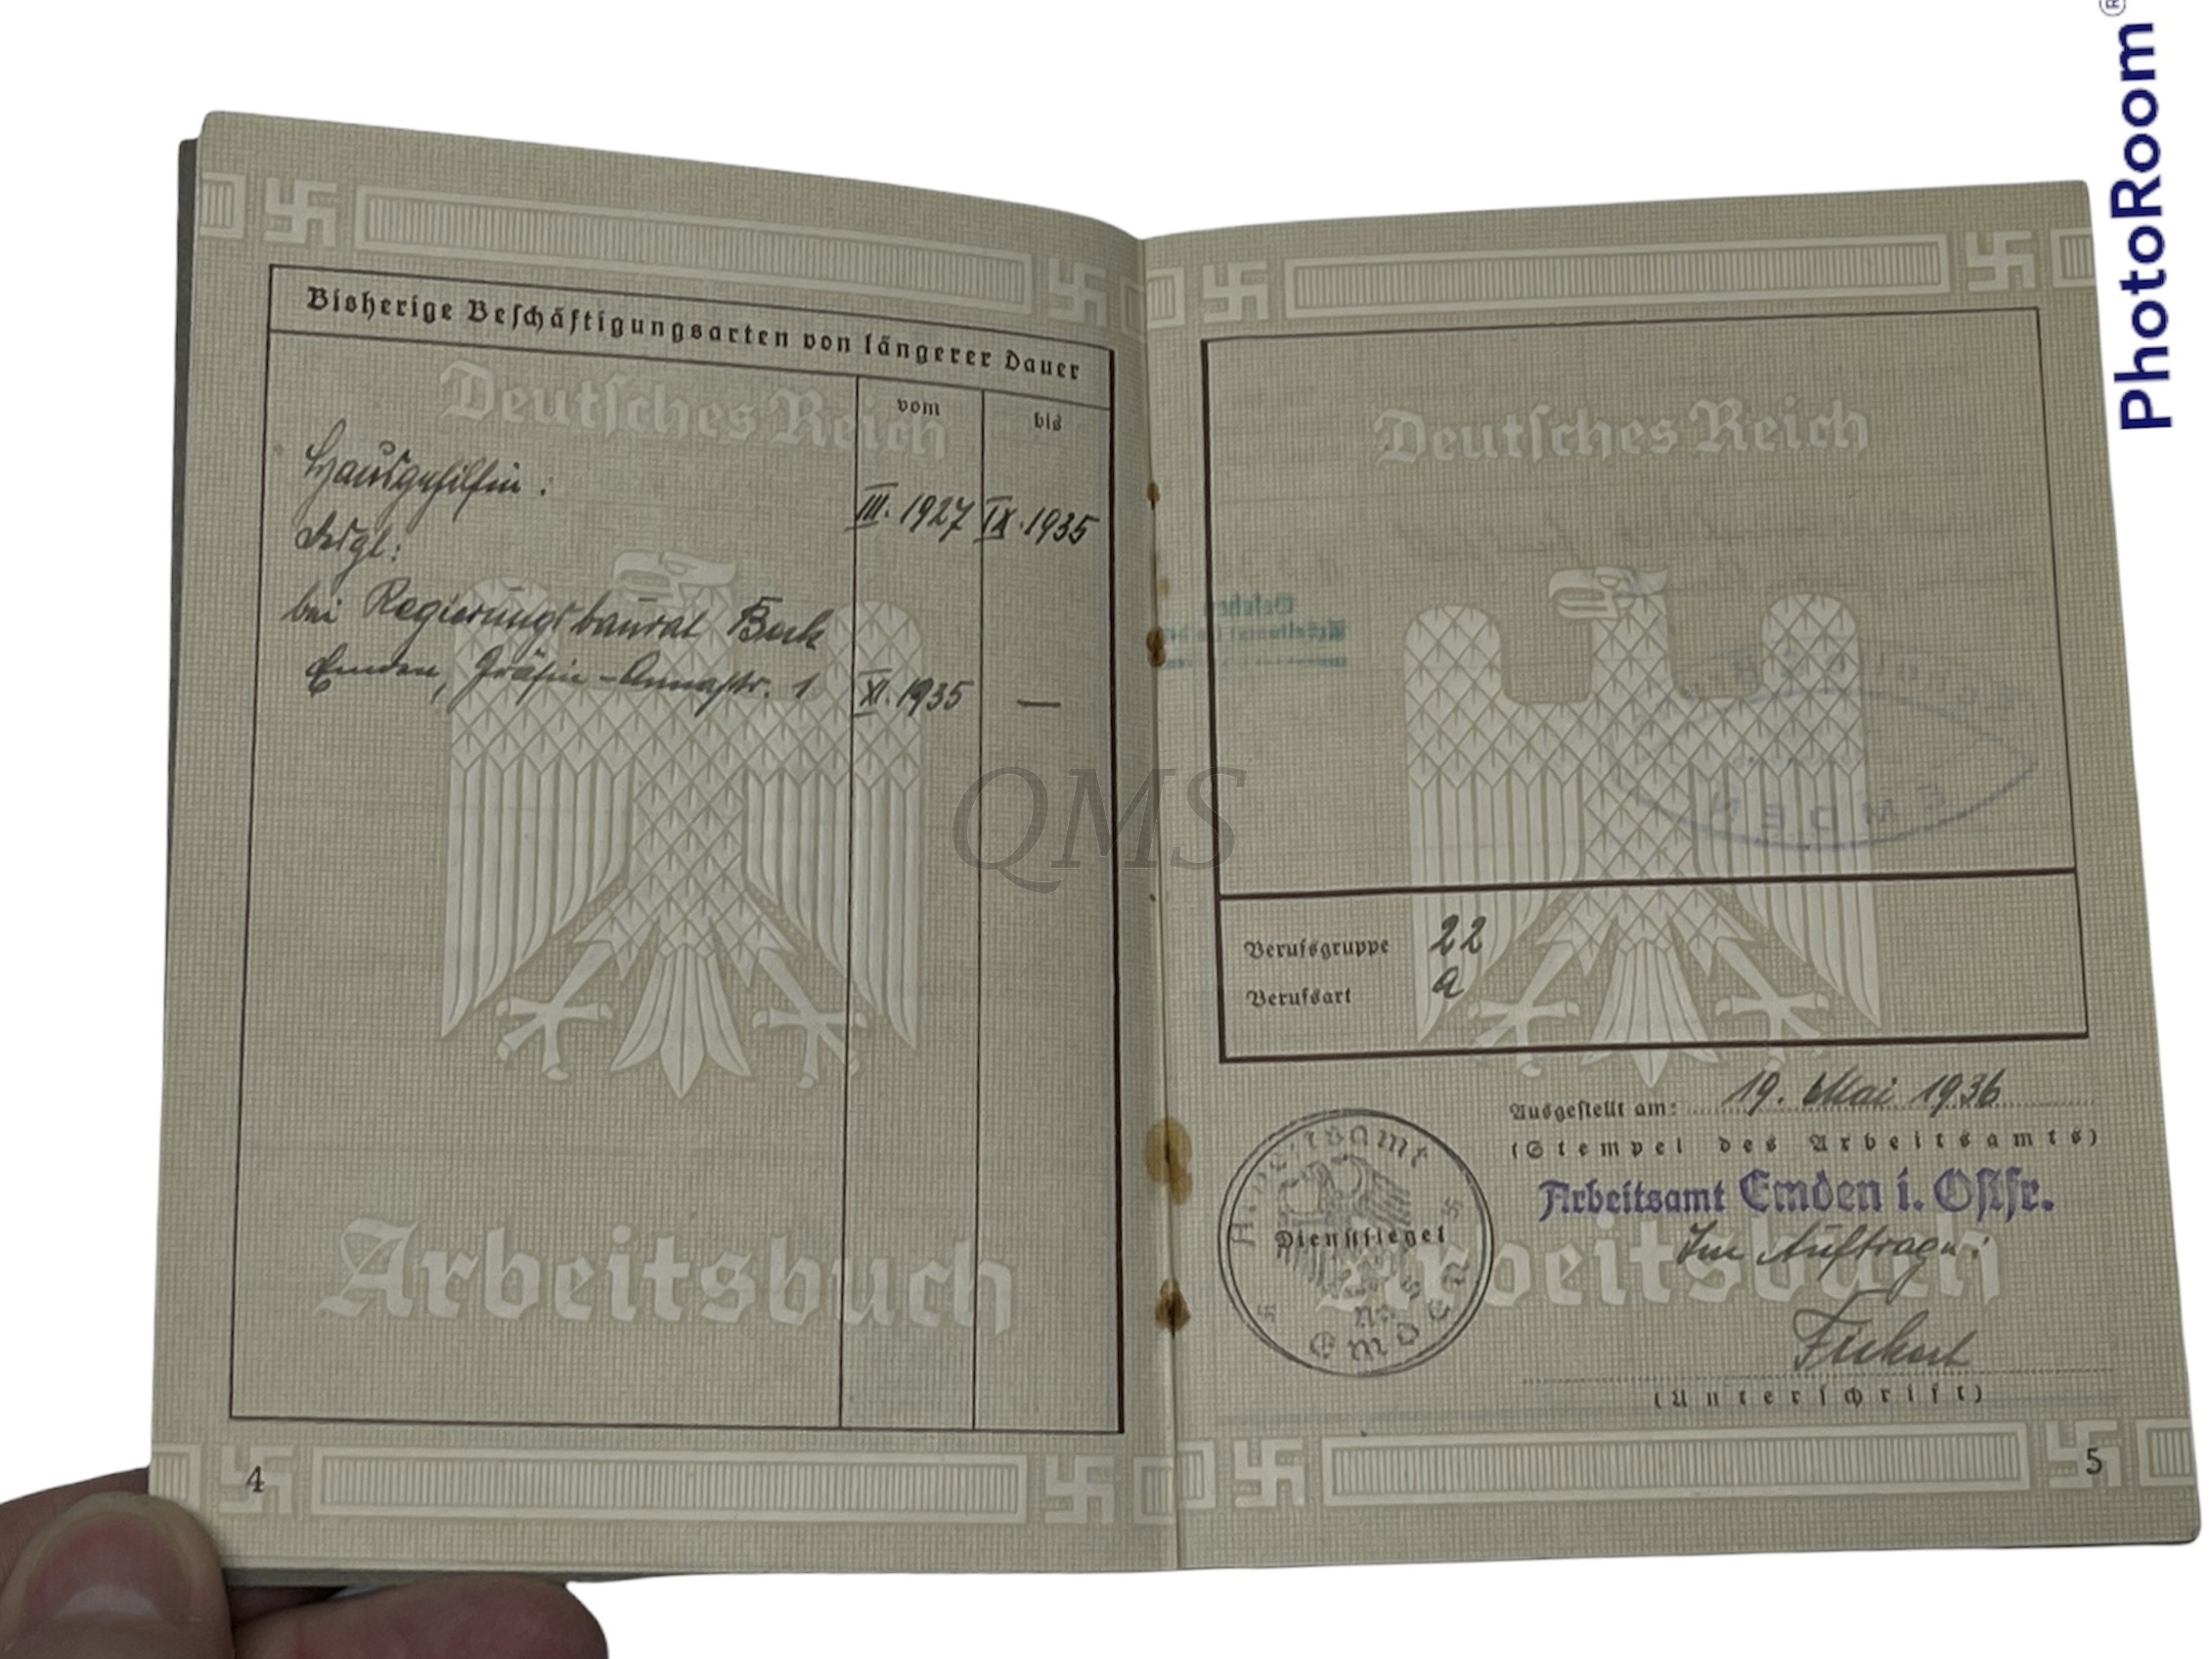 Bisherige Beschäftigungsarten von längerer Dauer
Deutsches Reich
vom
bis
Hausgehilfin:
III. 1927
IX. 1935
desgl:
bei Regierungsbaurat
Emden, Gräfin-Annastr. 1
XI. 1935
—
Arbeitsbuch
4
Deutsches Reich
EMDEN
Berufsgruppe 22
Berufsart a
Ausgestellt am: 19. Mai 1936
(Stempel des Arbeitsamts)
Arbeitsamt Emden i. Ostfr.
Im Auftrage:
Arbeitsamt
Dienstsiegel
Emden
Arbeitsbuch
(Unterschrift)
5
QMS
PhotoRoom®